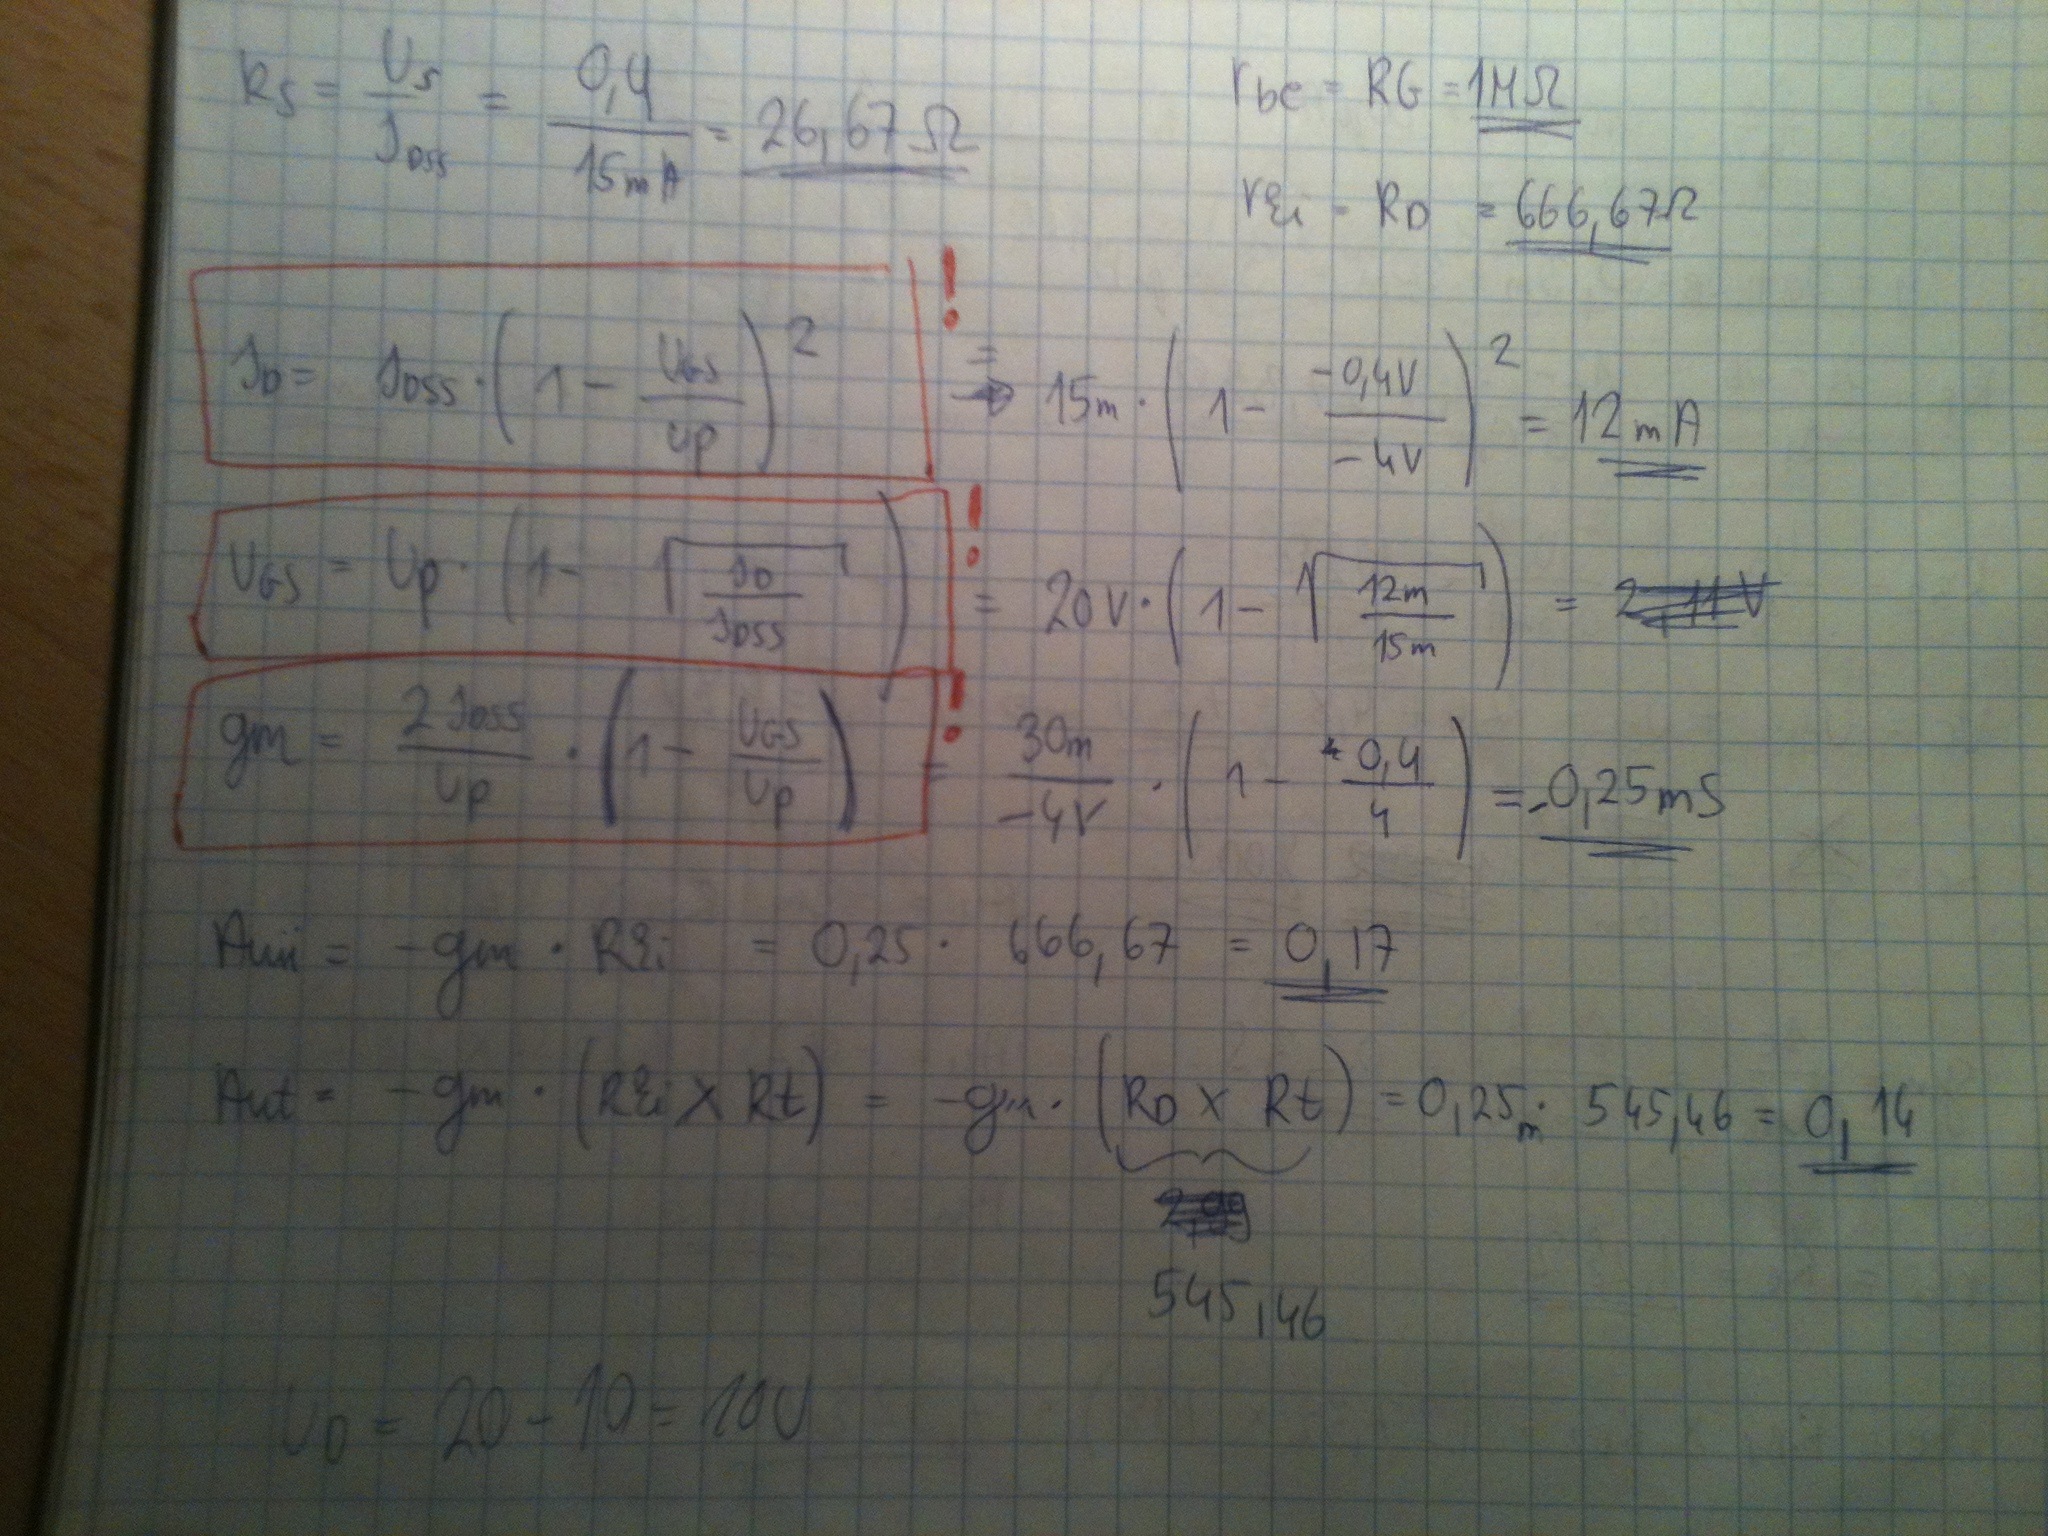 RS = US / IDSS = 0,4 / 15mA = 26,67 Ω
rbe = RG = 1MΩ
rizi = RD = 666,67Ω
ID = IDSS · (1 - UGS / UP)² ! = → 15m · (1 - -0,4V / -4V)² = 12mA
UGS = UP · (1 - √(ID / IDSS)) ! = 20V · (1 - √(12m / 15m)) =
gm = 2IDSS / UP · (1 - UGS / UP) ! = 30m / -4V · (1 - 0,4 / 4) = -0,25mS
= 0,25 · 666,67 = 0,17
Aut = -gm · (Rizi X Rt) = -gm · (RD X Rt) = 0,25m · 545,46 = 0,14
545,46
UD = 20 - 10 = 10V